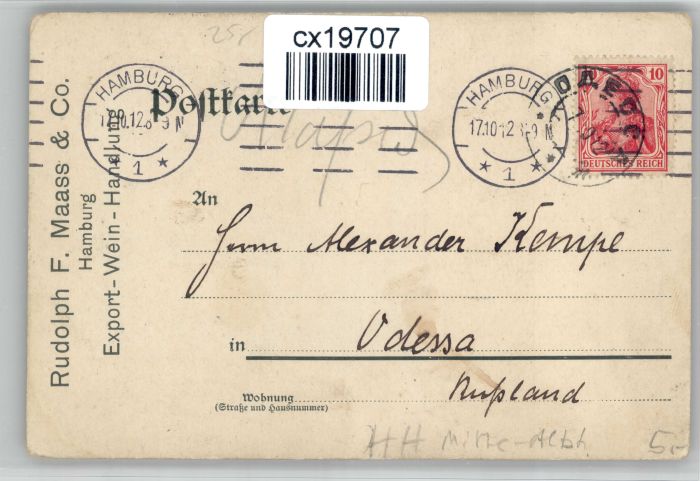 cx19707
25,-
Postkarte
HAMBURG
17.10.12.8-9 N
* 1 *
HAMBURG
17.10.12.8-9 N
* 1 *
ОДЕССА
10
DEUTSCHES REICH
Rudolph F. Maass & Co.
Hamburg
Export-Wein-Handlung
An
Herrn Alexander Kempe
in Odessa
Rußland
Wohnung
(Straße und Hausnummer)
HH Mitte-Altst.
5,-